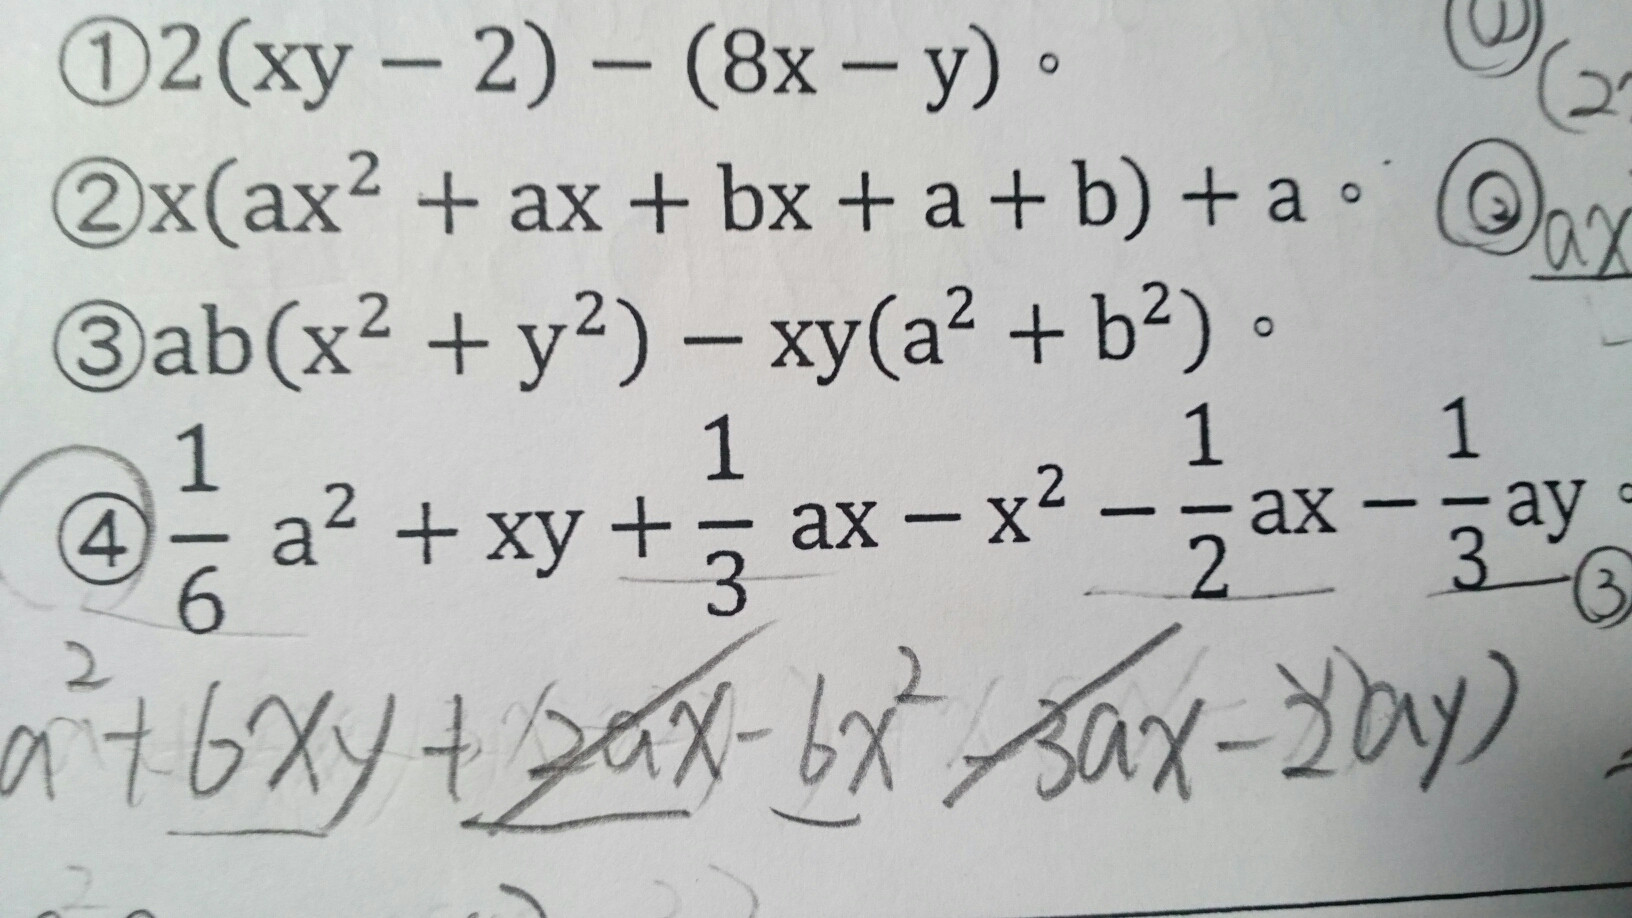 ①2(xy − 2) − (8x − y)。 ① (2
②x(ax² + ax + bx + a + b) + a。 ② ax
③ab(x² + y²) − xy(a² + b²)。
④1/6 a² + xy + 1/3 ax − x² − 1/2 ax − 1/3 ay。
③
a² + 6xy + 2ax - 6x² - 3ax - 2ay)